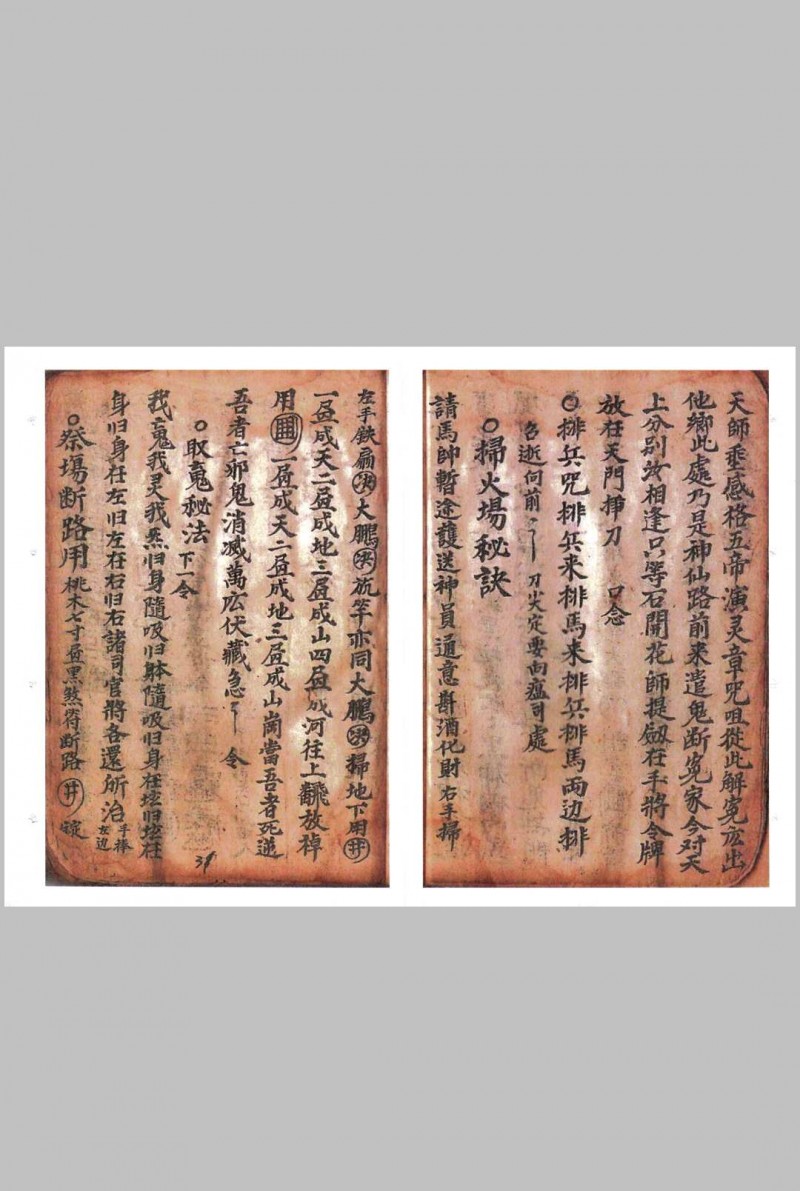 天師垂感格五帝演灵章咒咀從此解冤宏出
他鄉此處乃是神仙路前来遣鬼断冤家今对天
上分別汝相逢只等石開花師提劔在手將令牌
放在天門挿刀 口念
○排兵咒排兵来排馬来排兵排馬両边排
名逝何前 刀尖定要向瘟司處
○掃火場秘訣
請馬帥暫途護送神員通意斟酒化財右手掃
左手鉄扇大鵬旂竿亦同大鵬掃地下用井
一昼成天二昼成地三昼成山四昼成河往上飜放棹
用 一昼成天二昼成地三昼成山崗當吾者死逆
吾者亡邪鬼消滅萬宏伏藏急 令
○取䰟秘法 下一令
我䰟我灵我炁归身隨吸归躰隨吸归身在坛归坛在
身归身在左归左在右归右諸司官將各還所治 手捧左边
○祭塲断路用 桃木七寸昼黑煞符断路 井
31